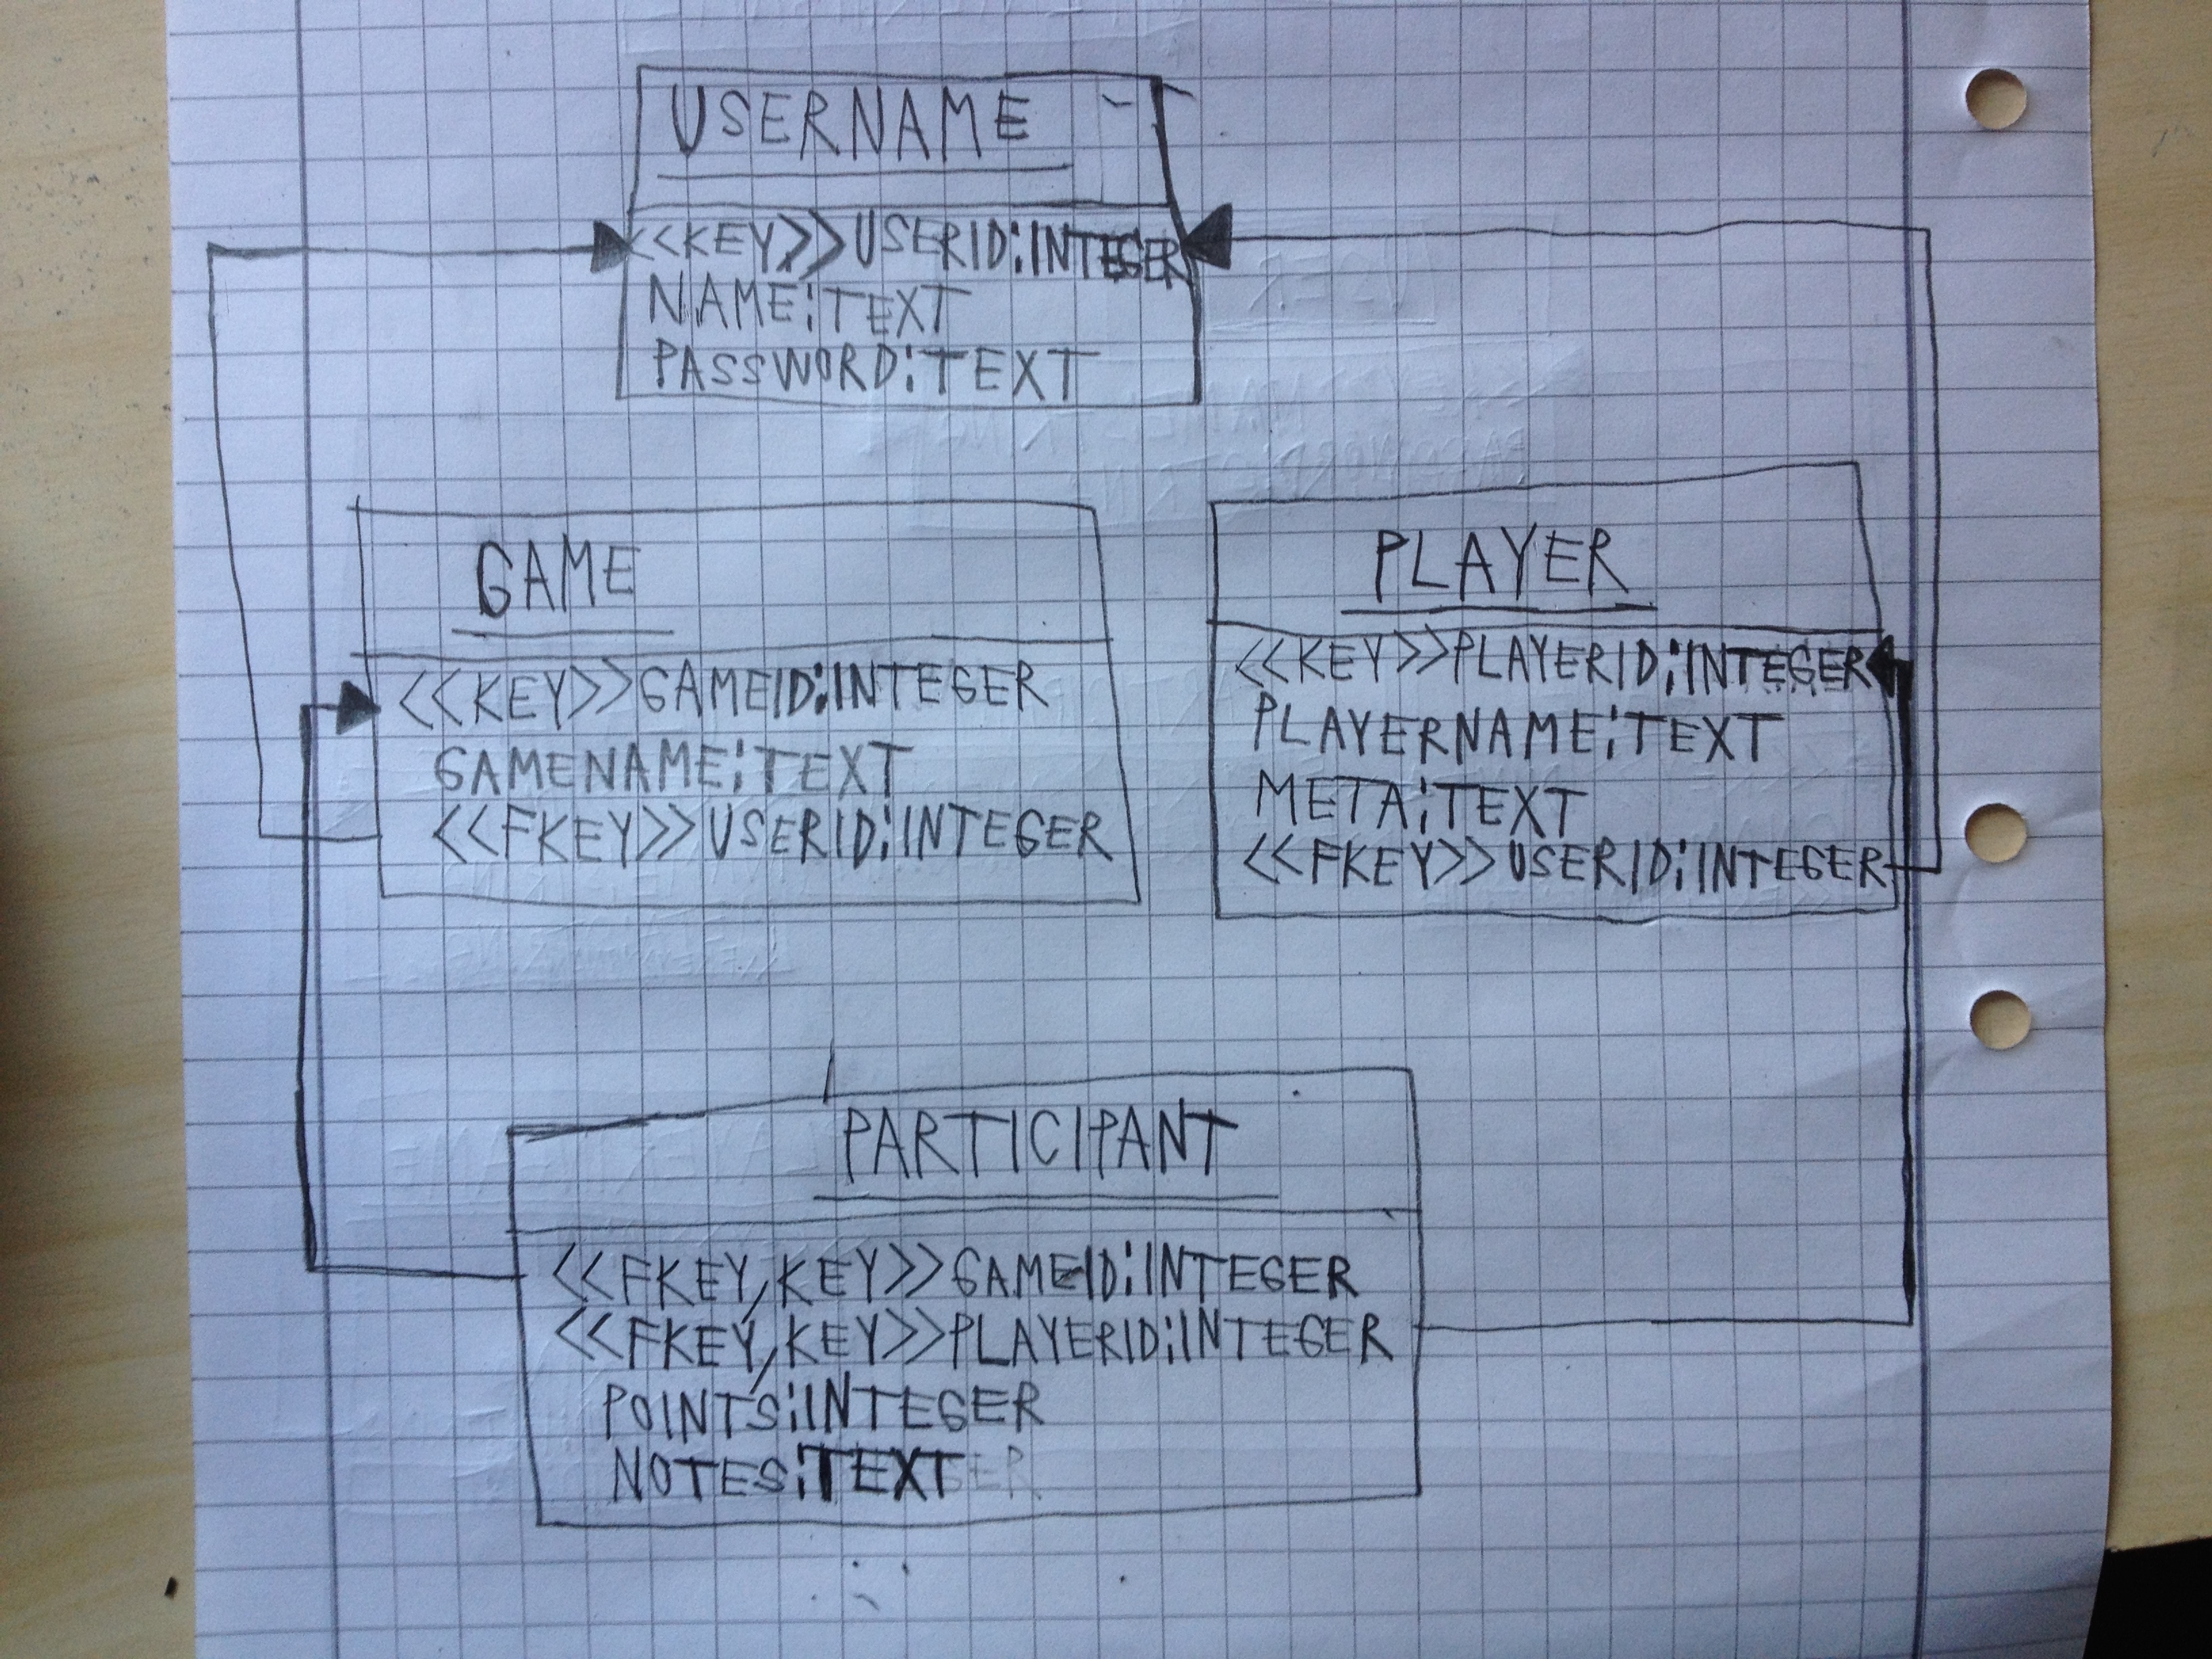 USERNAME
<<KEY>>USERID:INTEGER
NAME:TEXT
PASSWORD:TEXT
GAME
<<KEY>>GAMEID:INTEGER
GAMENAME:TEXT
<<FKEY>>USERID:INTEGER
PLAYER
<<KEY>>PLAYERID:INTEGER
PLAYERNAME:TEXT
META:TEXT
<<FKEY>>USERID:INTEGER
PARTICIPANT
<<FKEY,KEY>>GAMEID:INTEGER
<<FKEY,KEY>>PLAYERID:INTEGER
POINTS:INTEGER
NOTES:TEXT